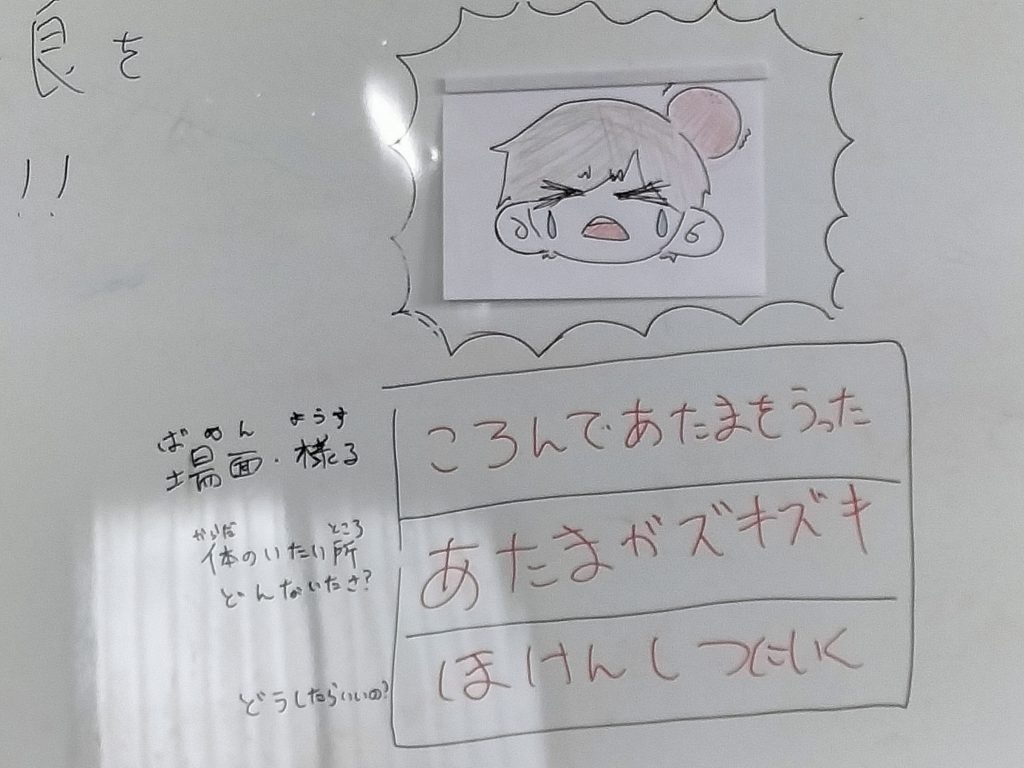 良を
!!
ころんであたまをうった
ばめん ようす
場面・様子
あたまがズキズキ
からだ ところ
体のいたい所
どんないたさ?
ほけんしつにいく
どうしたらいいの?